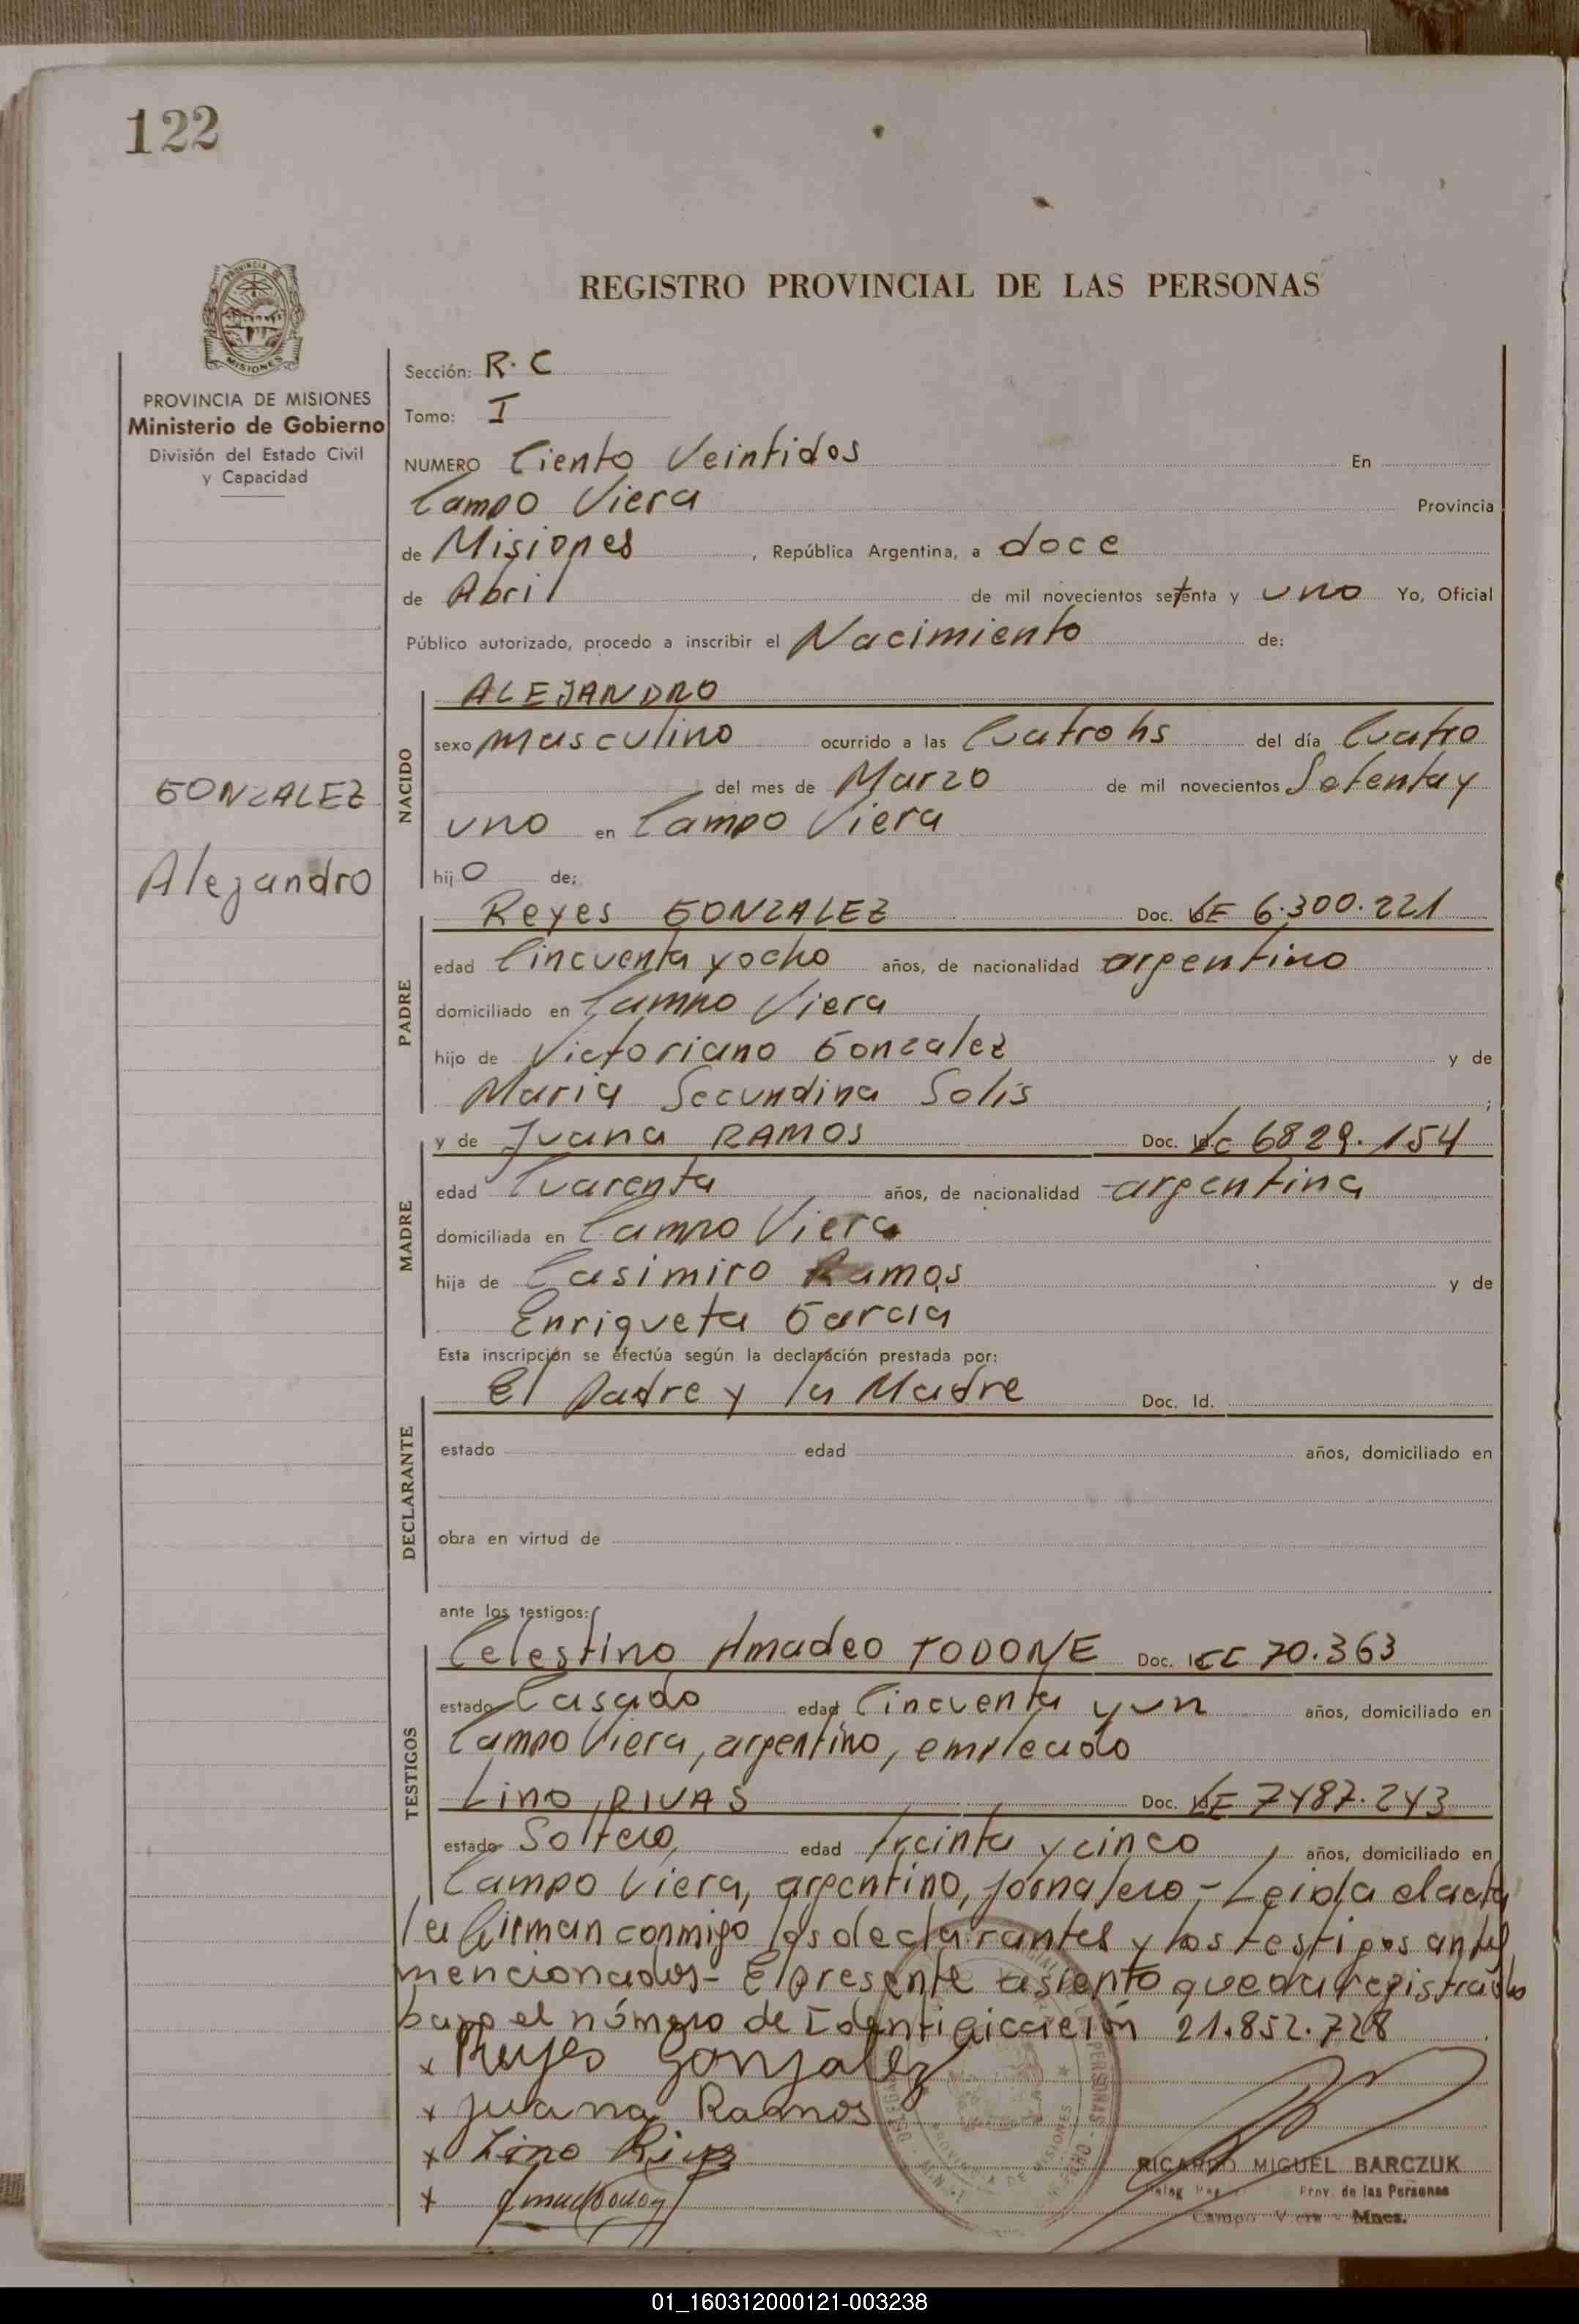 122
REGISTRO PROVINCIAL DE LAS PERSONAS
PROVINCIA DE MISIONES
Ministerio de Gobierno
División del Estado Civil
y Capacidad
GONZALEZ
Alejandro
Sección: R. C
Tomo: I
NUMERO Ciento Veintidos En
Campo Viera Provincia
de Misiones, República Argentina, a doce
de Abril de mil novecientos setenta y uno Yo, Oficial
Público autorizado, procedo a inscribir el Nacimiento de:
NACIDO
ALEJANDRO
sexo masculino ocurrido a las Cuatro hs del día Cuatro
del mes de Marzo de mil novecientos Setenta y
uno en Campo Viera
hijo de;
PADRE
Reyes GONZALEZ Doc. LE 6.300.221
edad Cincuenta y ocho años, de nacionalidad argentino
domiciliado en Campo Viera
hijo de Victoriano Gonzalez y de
Maria Secundina Solis ;
MADRE
y de Juana RAMOS Doc. LC 6829.154
edad Cuarenta años, de nacionalidad argentina
domiciliada en Campo Viera
hija de Casimiro Ramos y de
Enriqueta Garcia
Esta inscripción se efectúa según la declaración prestada por:
DECLARANTE
El Padre y la Madre Doc. Id.
estado edad años, domiciliado en
obra en virtud de
ante los testigos:
TESTIGOS
Celestino Amadeo TODONE Doc. 70.363
estado Casado edad Cincuenta y un años, domiciliado en
Campo Viera, argentino, empleado
Lino RIVAS Doc. LE 7487.243
estado Soltero, edad treinta y cinco años, domiciliado en
Campo Viera, argentino, jornalero - Leida el acta
la firman conmigo los declarantes y los testigos antes
mencionados - El presente asiento queda registrado
bajo el número de Identificación 21.852.728
x Reyes Gonzalez
x Juana Ramos
x Lino Rivas
x
RICARDO MIGUEL BARCZUK
Prov. de las Personas
Campo Viera Mnes.
01_160312000121-003238